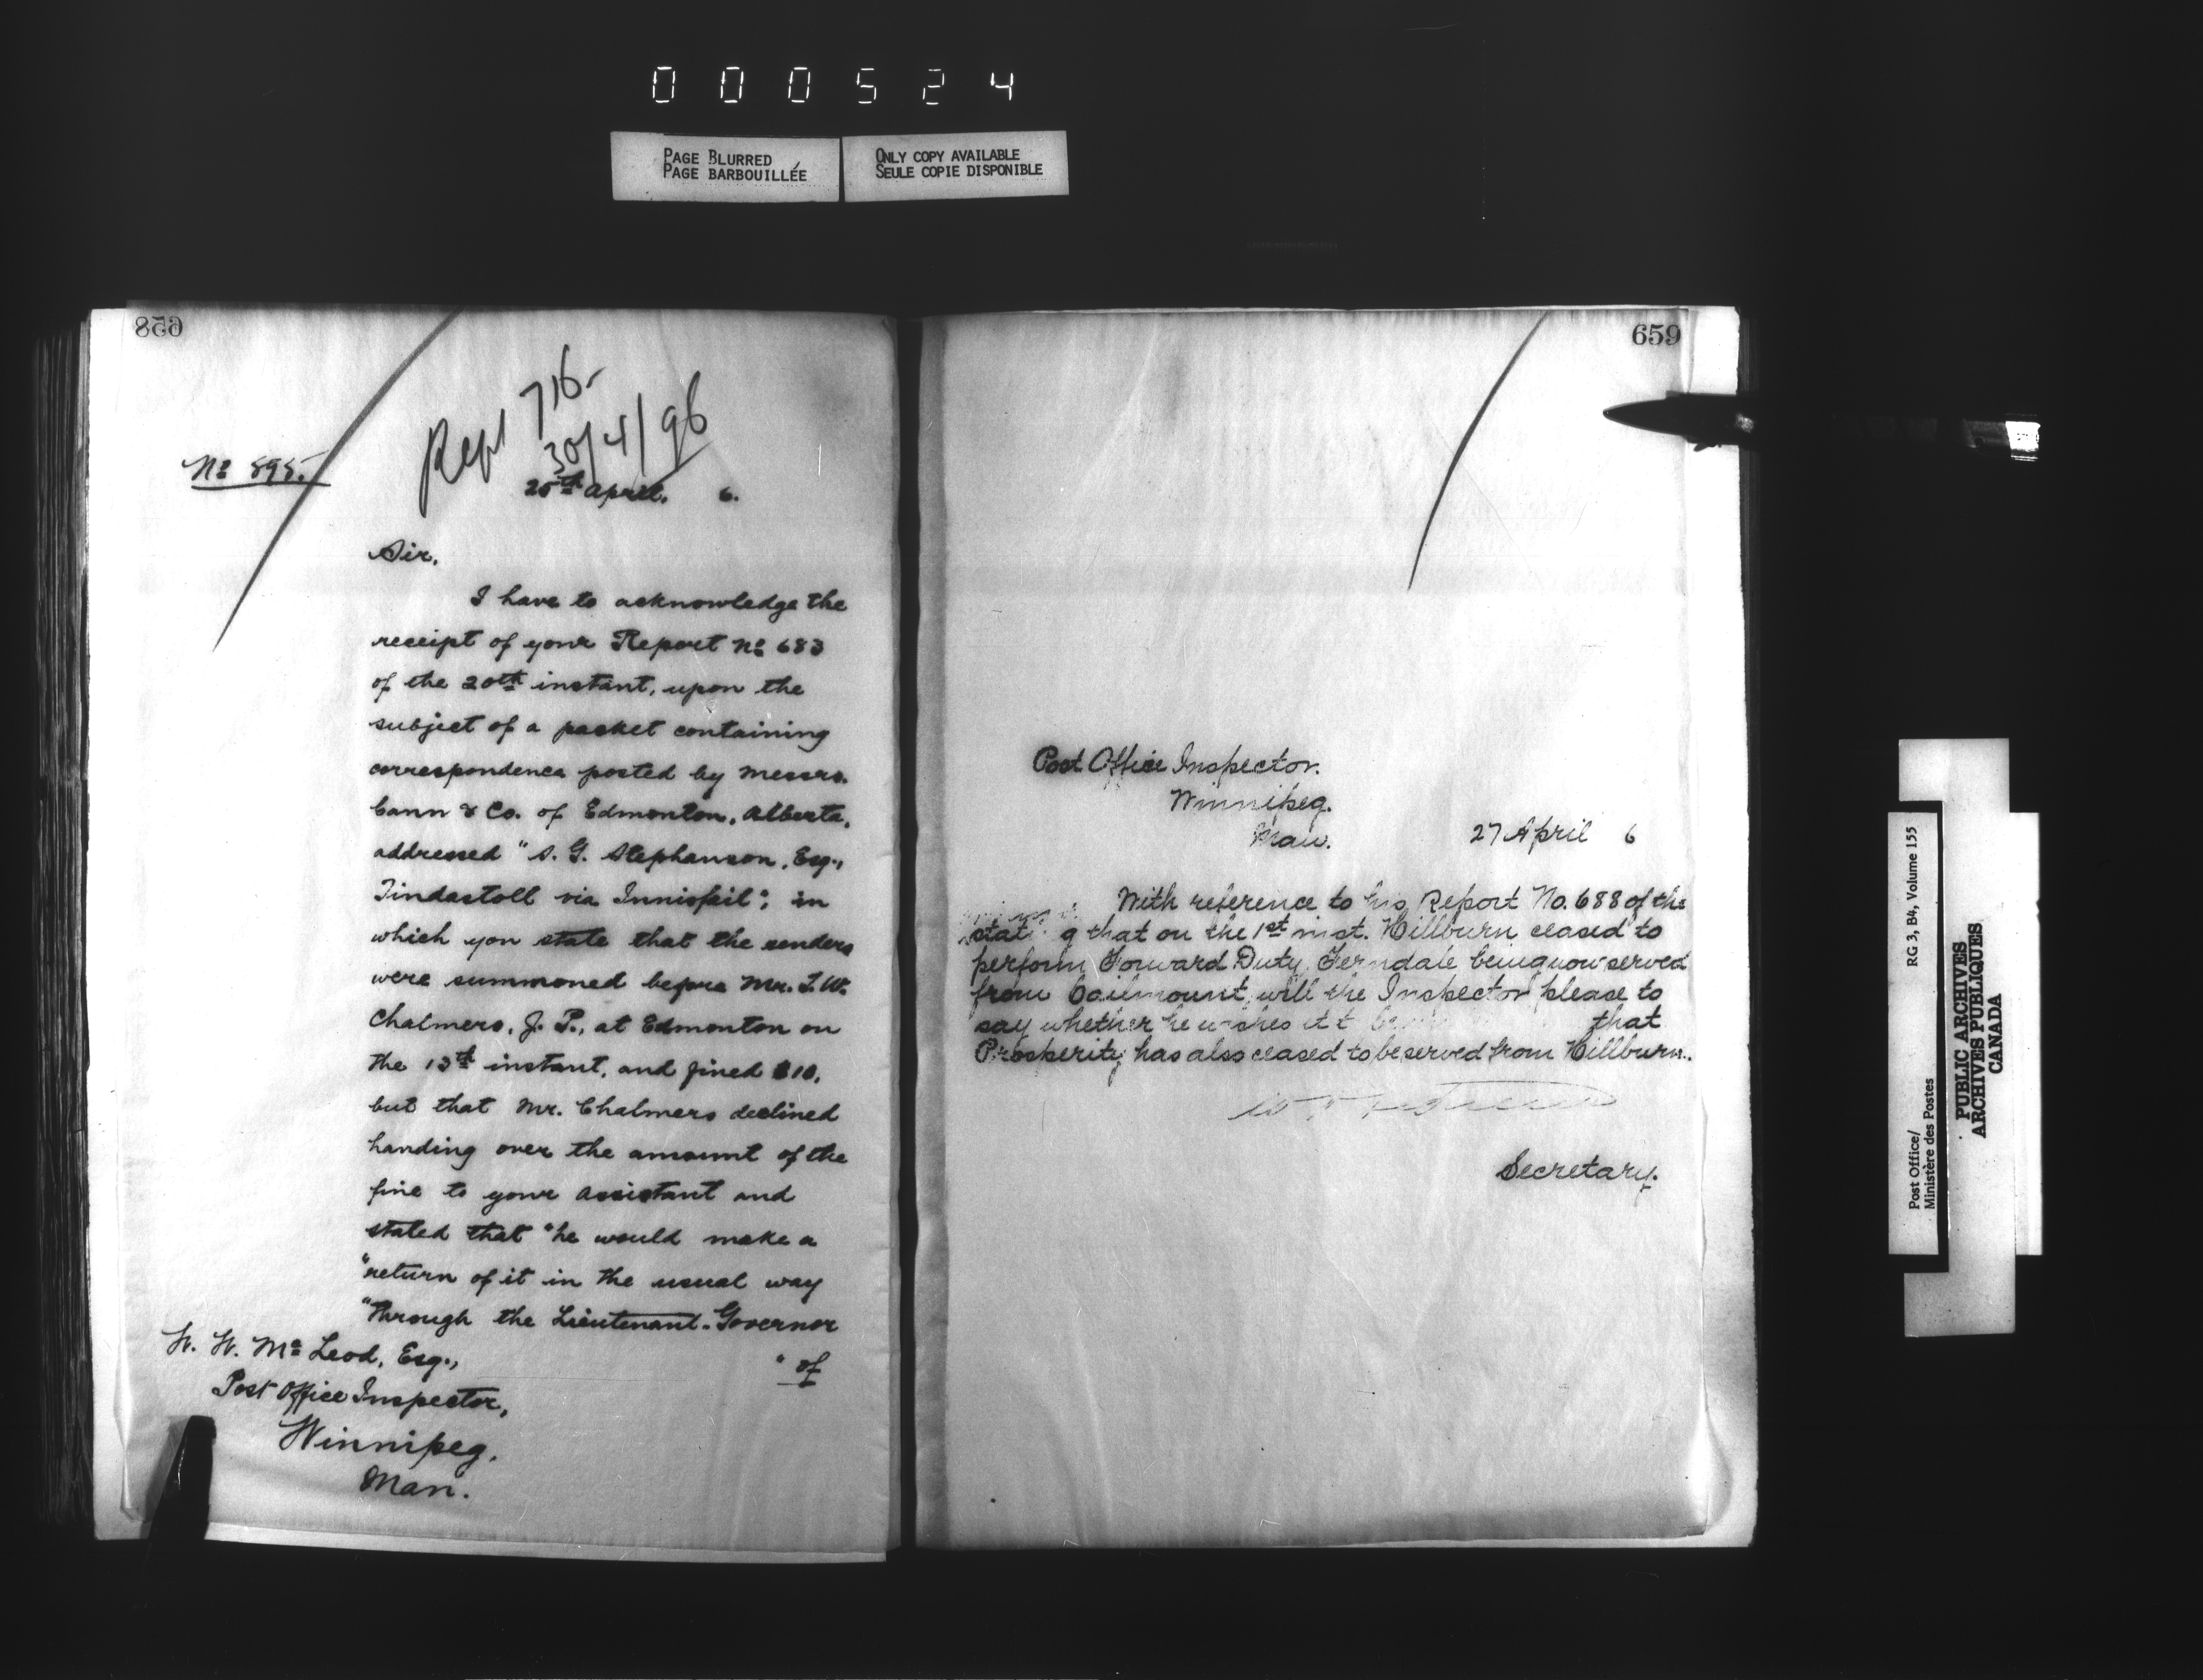 000524
PAGE BLURRED
PAGE BARBOUILLÉE
ONLY COPY AVAILABLE
SEULE COPIE DISPONIBLE
658
Rept 716-
30/4/96
No 595.
25th April. 6.
Sir,
I have to acknowledge the
receipt of your Report No 683
of the 20th instant, upon the
subject of a packet containing
correspondence posted by Messrs.
Cann & Co. of Edmonton, Alberta,
addressed "S. G. Stephanson, Esq.,
Tindastoll via Innisfail", in
which you state that the senders
were summoned before Mr. T. W.
Chalmers, J. P., at Edmonton on
the 13th instant, and fined $10,
but that Mr. Chalmers declined
handing over the amount of the
fine to your Assistant and
stated that "he would make a
"return of it in the usual way
"through the Lieutenant-Governor
" of
W. W. McLeod, Esq.,
Post Office Inspector,
Winnipeg,
Man.
659
Post Office Inspector.
Winnipeg.
Man.
27 April 6
With reference to his Report No. 688 of the
that on the 1st inst. Hillburn ceased to
perform Forward Duty, Ferndale being now served
from will the Inspector please to
say whether he wishes it that
Prosperity has also ceased to be served from Hillburn.
Secretary.
Post Office/
Ministère des Postes
RG 3, B4, Volume 155
PUBLIC ARCHIVES
ARCHIVES PUBLIQUES
CANADA